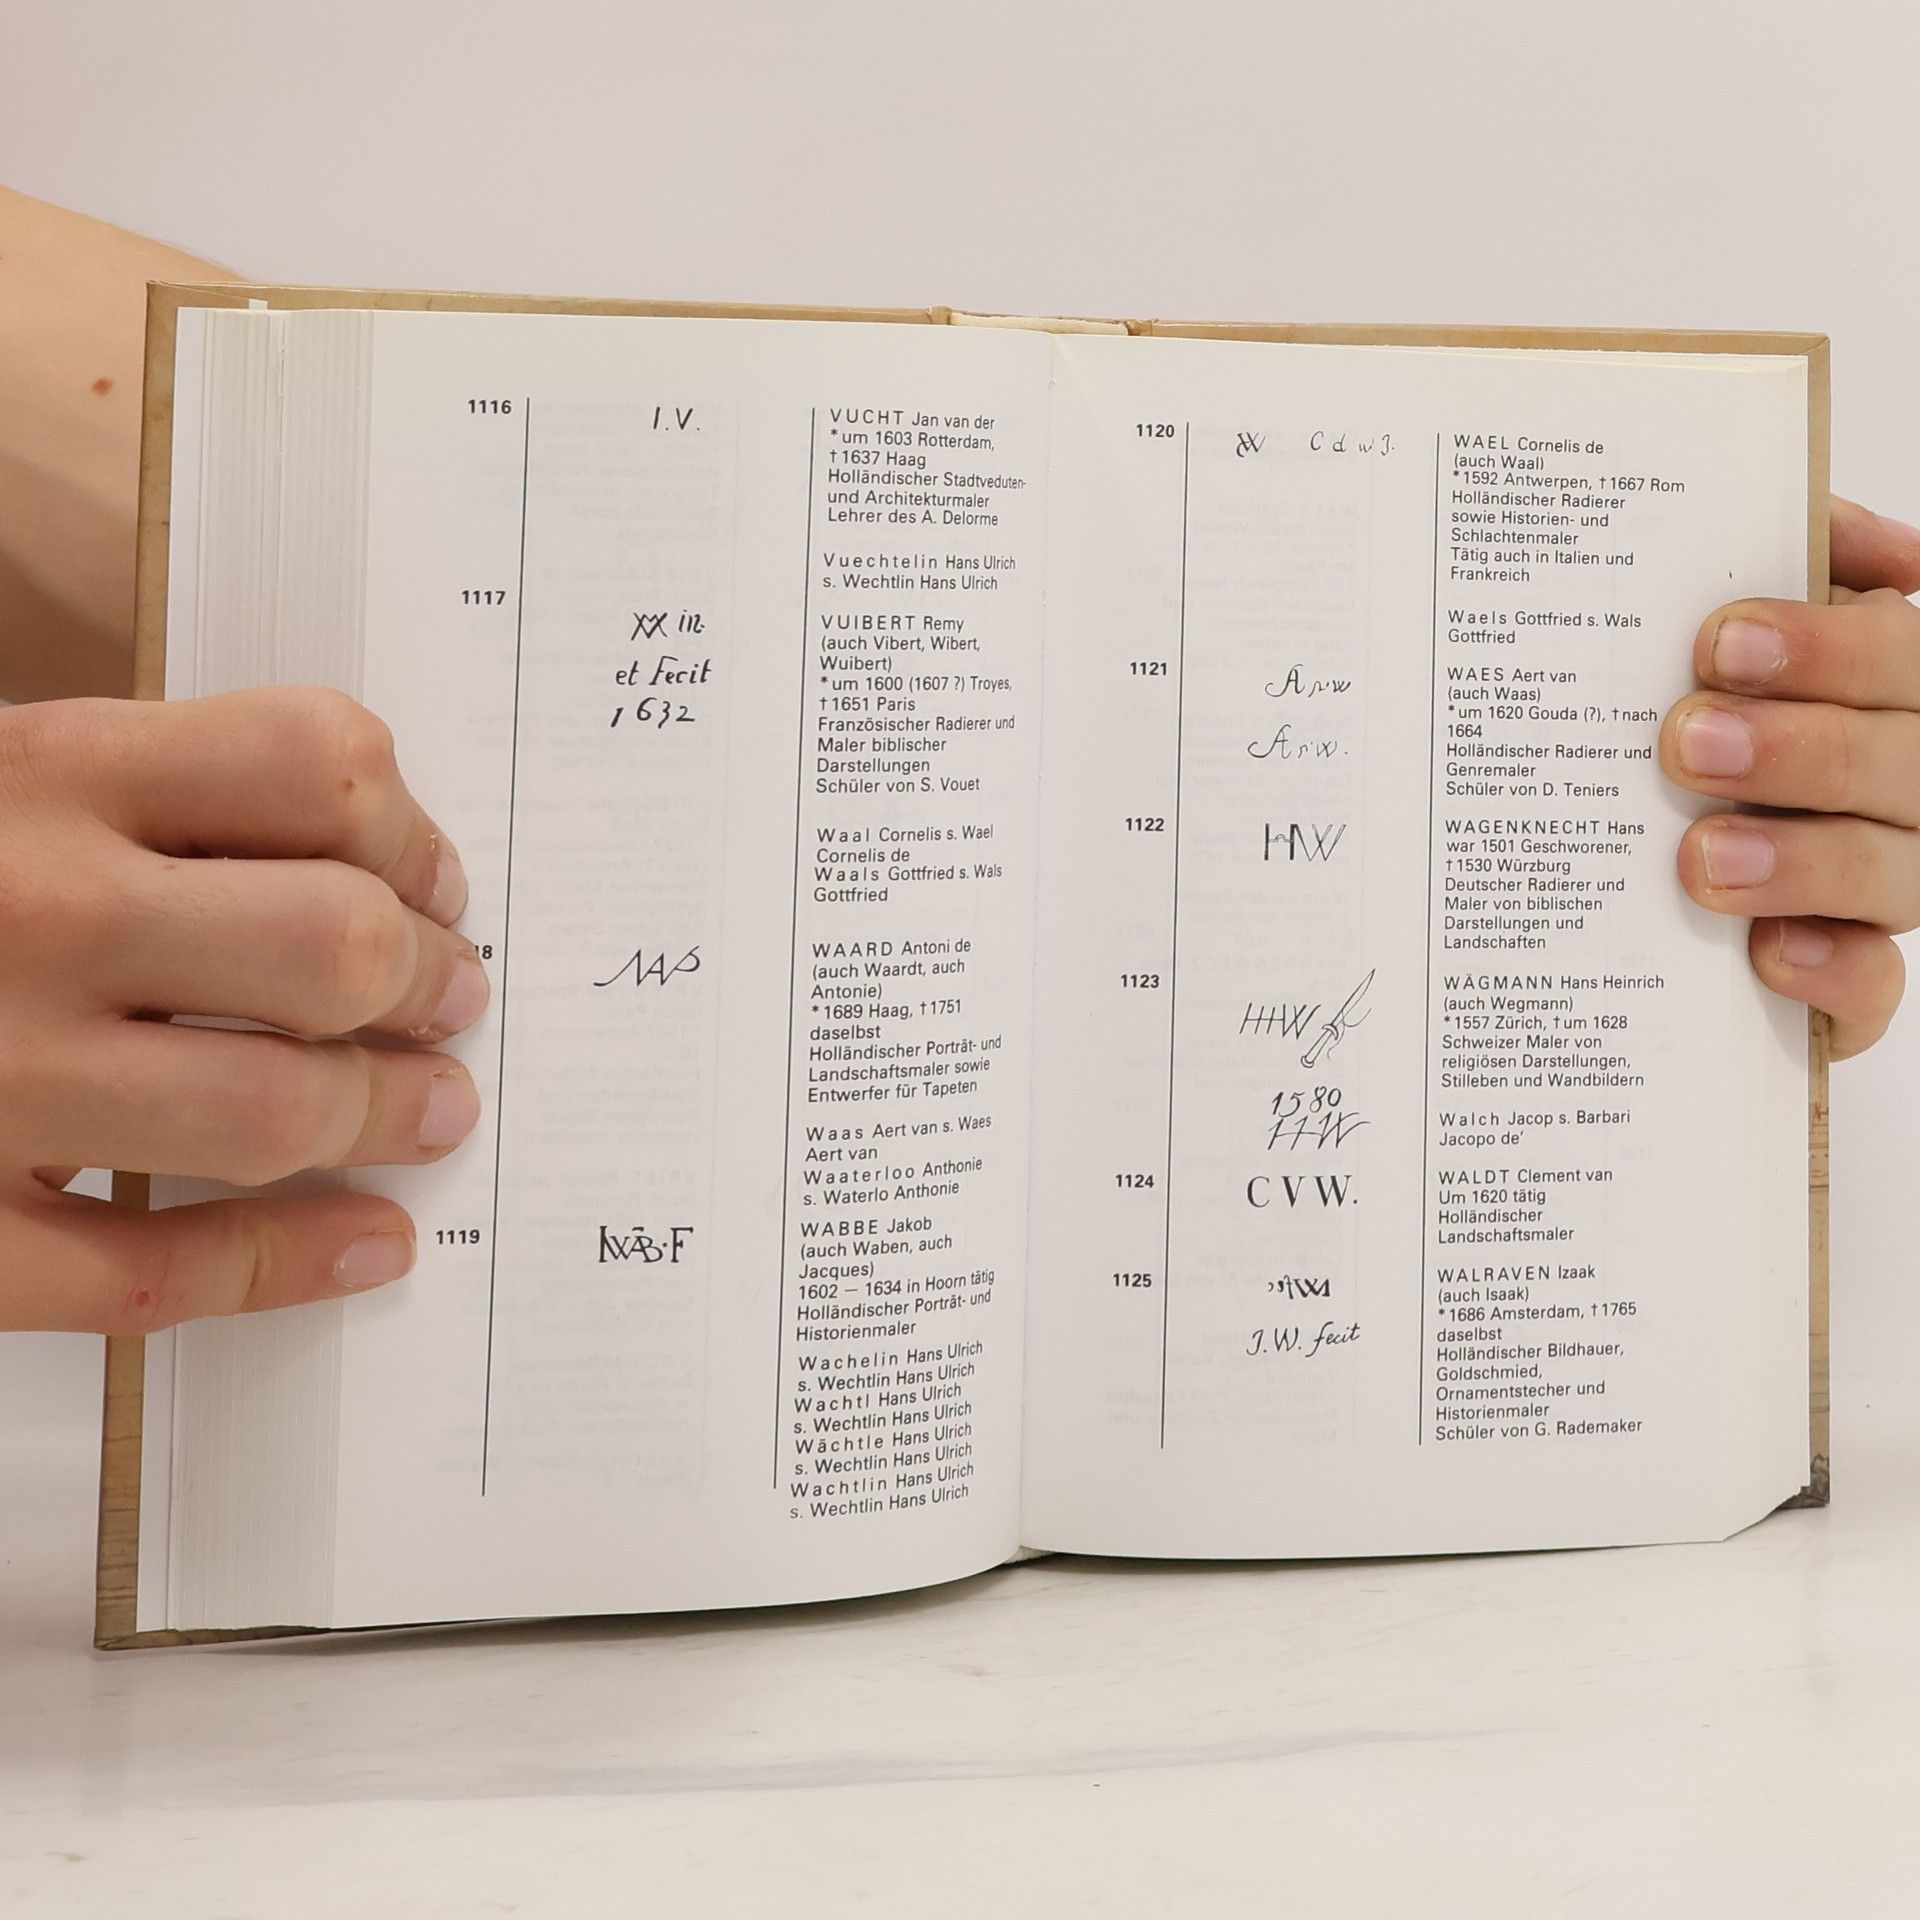 1116
I.V.
VUCHT Jan van der
* um 1603 Rotterdam,
† 1637 Haag
Holländischer Stadtveduten-
und Architekturmaler
Lehrer des A. Delorme
Vuechtelin Hans Ulrich
s. Wechtlin Hans Ulrich
1117
in
et Fecit
1632
VUIBERT Remy
(auch Vibert, Wibert,
Wuibert)
* um 1600 (1607 ?) Troyes,
† 1651 Paris
Französischer Radierer und
Maler biblischer
Darstellungen
Schüler von S. Vouet
Waal Cornelis s. Wael
Cornelis de
Waals Gottfried s. Wals
Gottfried
8
WAARD Antoni de
(auch Waardt, auch
Antonie)
* 1689 Haag, † 1751
daselbst
Holländischer Porträt- und
Landschaftsmaler sowie
Entwerfer für Tapeten
Waas Aert van s. Waes
Aert van
Waaterloo Anthonie
s. Waterlo Anthonie
1119
WABBE Jakob
(auch Waben, auch
Jacques)
1602 — 1634 in Hoorn tätig
Holländischer Porträt- und
Historienmaler
Wachelin Hans Ulrich
s. Wechtlin Hans Ulrich
Wachtl Hans Ulrich
s. Wechtlin Hans Ulrich
Wächtle Hans Ulrich
s. Wechtlin Hans Ulrich
Wachtlin Hans Ulrich
s. Wechtlin Hans Ulrich
1120
C d w J.
WAEL Cornelis de
(auch Waal)
* 1592 Antwerpen, † 1667 Rom
Holländischer Radierer
sowie Historien- und
Schlachtenmaler
Tätig auch in Italien und
Frankreich
Waels Gottfried s. Wals
Gottfried
1121
WAES Aert van
(auch Waas)
* um 1620 Gouda (?), † nach
1664
Holländischer Radierer und
Genremaler
Schüler von D. Teniers
1122
HW
WAGENKNECHT Hans
war 1501 Geschworener,
† 1530 Würzburg
Deutscher Radierer und
Maler von biblischen
Darstellungen und
Landschaften
1123
HHW
1580
WÄGMANN Hans Heinrich
(auch Wegmann)
* 1557 Zürich, † um 1628
Schweizer Maler von
religiösen Darstellungen,
Stilleben und Wandbildern
Walch Jacop s. Barbari
Jacopo de'
1124
CVW.
WALDT Clement van
Um 1620 tätig
Holländischer
Landschaftsmaler
1125
J.W. fecit
WALRAVEN Izaak
(auch Isaak)
* 1686 Amsterdam, † 1765
daselbst
Holländischer Bildhauer,
Goldschmied,
Ornamentstecher und
Historienmaler
Schüler von G. Rademaker